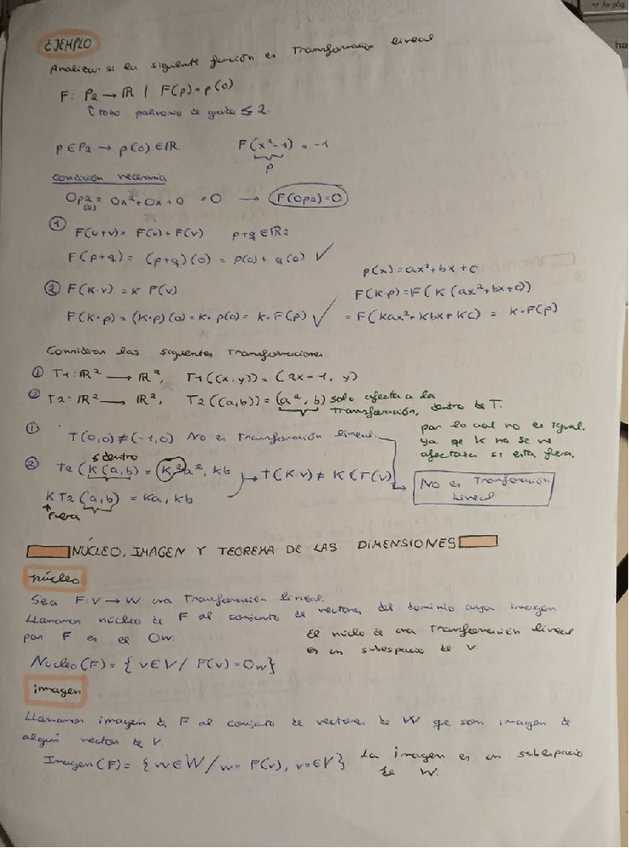 EJEMPLO
Analizar si la siguiente función es Transformación lineal
F: P2 → IR / F(p) = p(0)
todo polinomio de grado ≤ 2.
p ∈ P2 → p(0) ∈ IR. F(x²-1) = -1
p
Condición necesaria
0p2 = 0x² + 0x + 0 = 0 → F(0p2) = 0
(0)
① F(u+v) = F(u) + F(v) p+q ∈ IR2
F(p+q) = (p+q)(0) = p(0) + q(0) ✓
p(x) = ax² + bx + c
② F(k·v) = k F(v) F(k·p) = F(k(ax²+bx+c))
F(k·p) = (k·p)(0) = k·p(0) = k·F(p) ✓ = F(kax² + kbx + kc) = k·F(p)
Consideran las siguientes Transformaciones.
① T1: IR² → IR², T1((x,y)) = (2x-1, y)
② T2: IR² → IR², T2((a,b)) = (a², b) solo afecta a la
Transformación, dentro de T.
por lo cual no es igual.
ya que k no se ve
afectada si esta fuera.
① T(0,0) ≠ (-1,0) No es Transformación lineal.
dentro
② T2(k(a,b)) = k²a², kb → T(k·v) ≠ k(T(v)
k T2(a,b) = ka, kb
fuera
No es Transformación
Lineal
NÚCLEO, IMAGEN Y TEOREMA DE LAS DIMENSIONES
núcleo
Sea F: V → W una Transformación lineal.
Llamamos núcleo de F al conjunto de vectores del dominio cuya imagen
por F es el 0w.
El núcleo de una Transformación lineal
es un subespacio de V
Nucleo(F) = { v ∈ V / F(v) = 0w }
imagen
Llamamos imagen de F al conjunto de vectores de W que son imagen de
algún vector de V.
Imagen(F) = { w ∈ W / w = F(v), v ∈ V } La imagen es un subespacio
de W.